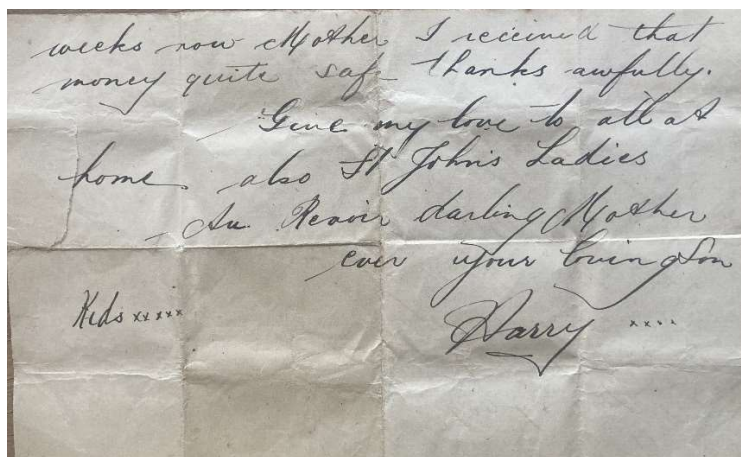 weeks now Mother I received that
money quite safe thanks awfully.
Give my love to all at
home also St John's Ladies
Au Revoir darling Mother
ever your loving Son
Kids xxxxx
Harry xxxx